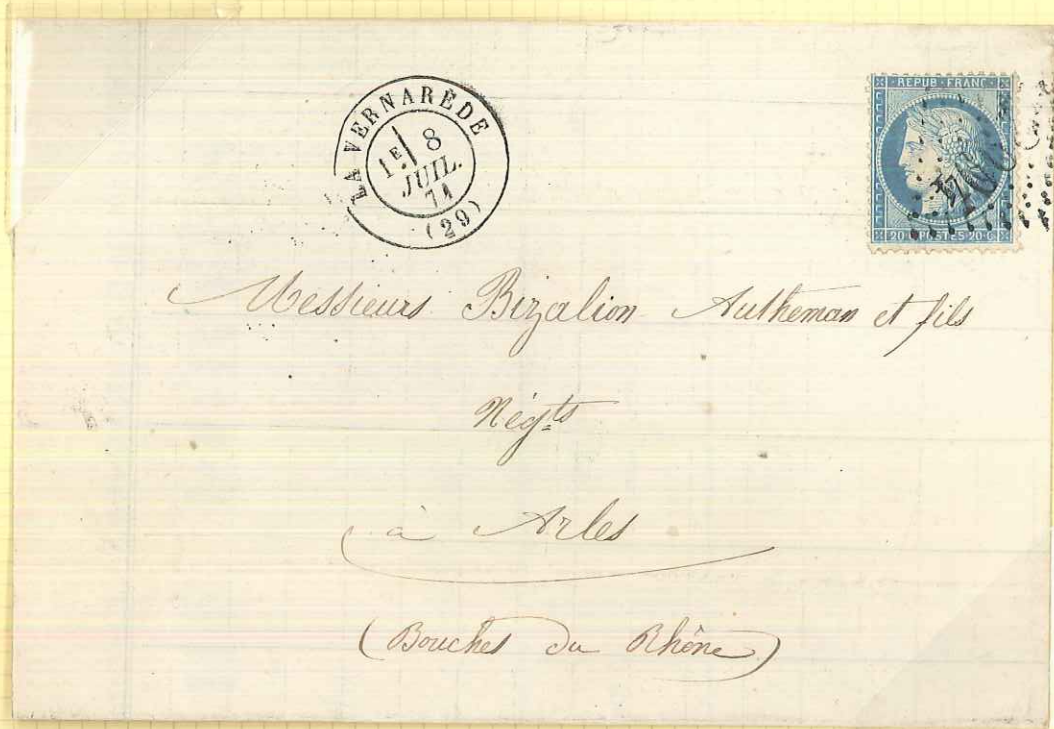 LA VERNARÈDE
1E 8
JUIL.
71
(29)
REPUB·FRANC·
20·C·POSTES·20·C
Messieurs Bizalion Autheman et fils
Négts
à Arles
(Bouches du Rhône)